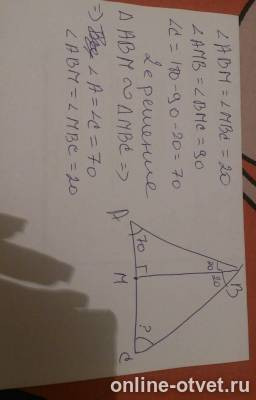 ∠ABM = ∠MBC = 20
∠AMB = ∠BMC = 90
∠C = 180 - 90 - 20 = 70
2е решение
△ABM ∾ △MBC =>
=> ∠A = ∠C = 70
∠ABM = ∠MBC = 20
B
20 20
A 70 M ? C
online-otvet.ru